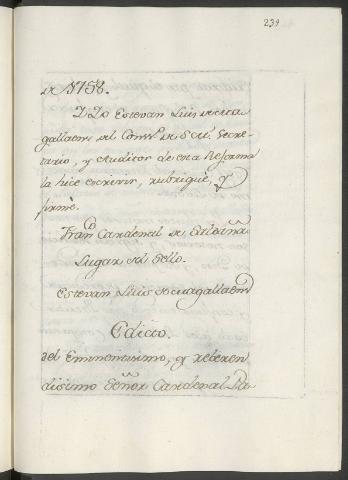 239
de 1758.
Y Yo Estevan Luis de
del Cons.º de S. M. Secre-
tario, y Auditor de esta Reforma
la hice escrivir, rubriqué, y
firmé.
Fran.co Cardenal de
Lugar del Sello.
Estevan Luis de
Edicto.
del Eminentisimo, y reveren
disimo Señor Cardenal